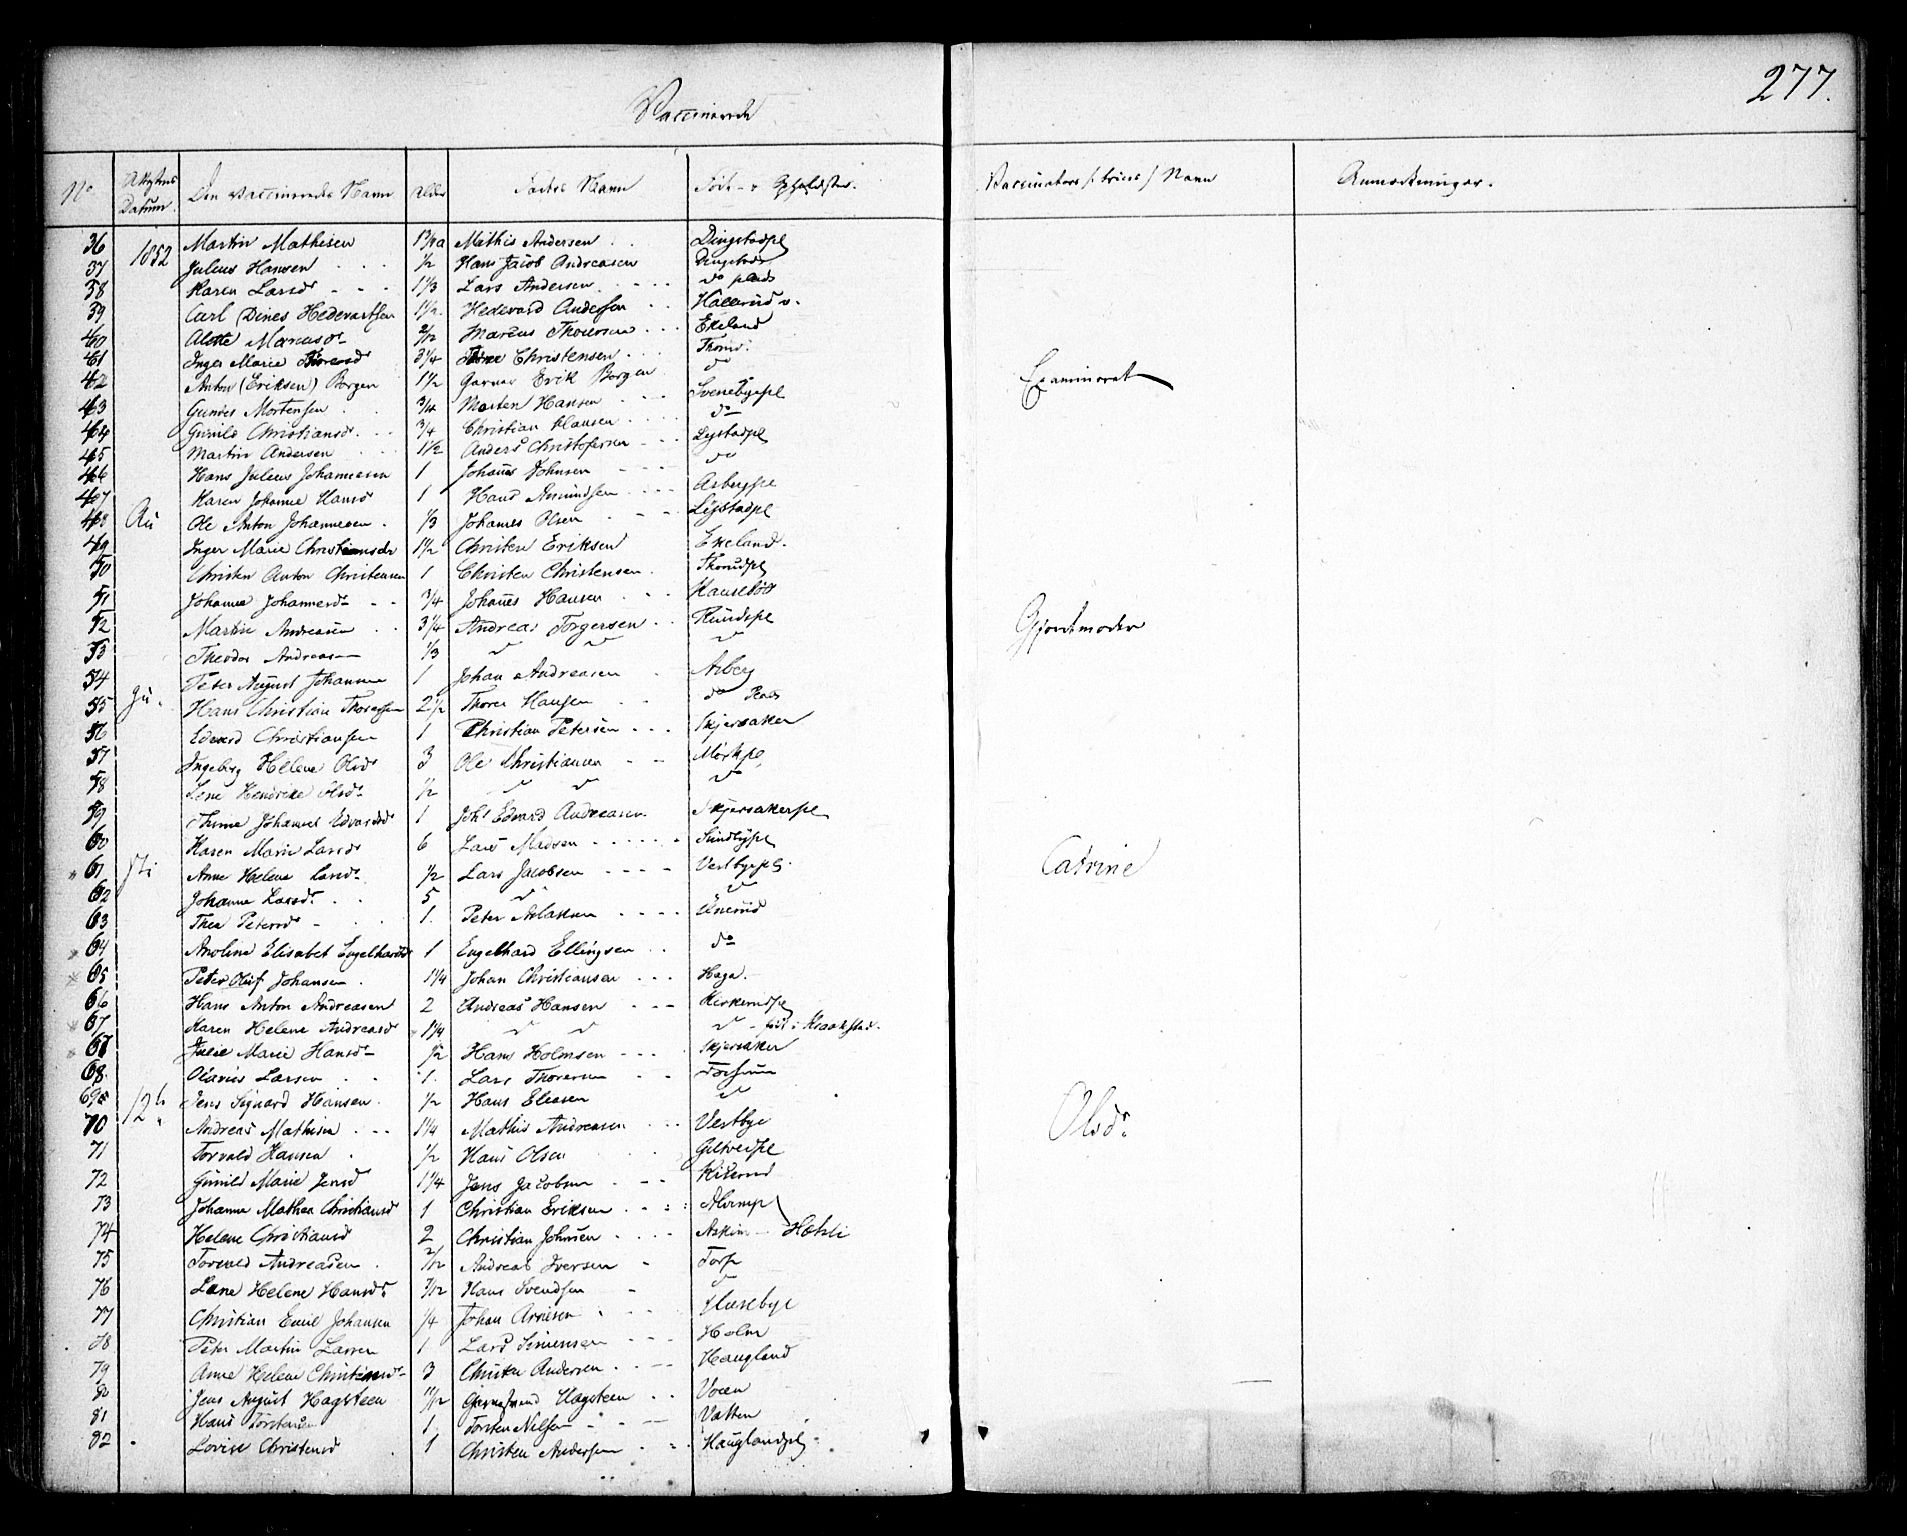 277.
Vaccinerede
No Attestens Datum. Den Vaccineredes Navn Alder Faders Navn Føde- o Opholdsted. Vaccinators /:trices:/ Navn Anmærkninger.
36 1852 Martin Mathisen Mathis Andersen Dingstadpl
37 Julius Hansen 1/2 Hans Jacob Andreasen Dingstad
38 Karen Larsd 1 1/3 Lars Andersen do plads
39 Carl (Dines Hedevartsen 1 1/2 Hedevard Andersen
40 Alette Marcusdr 2/12 Marcus Thoresen Ekeland
41 Inger Marie Thoresd 3 1/4 Thore Christensen
42 Anton (Eriksen) Borgen 1 1/2 Garver Erik Borgen Examineret
43 Gunder Mortensen 3/4 Morten Hansen Svenebyepl
44 Gunild Christiansd 3/4 Christian Hansen do
45 Martin Andersen 1 1/2 Anders Christofersen Lystadpl
46 Hans Julius Johannesen 1 Johanes Johnsen
47 Karen Johanne Hansd 1 Hans Amundsen Asbergpl
48 Au Ole Anton Johannesen 1/3 Johannes Olsen Lystadpl
49 Inger Marie Christiansdr 1 1/2 Christen Eriksen Ekeland
50 Christen Anton Christensen 1 Christen Christensen Thorudpl
51 Johanne Johannesd 3/4 Johanes Hansen
52 Martin Andreasen 3 1/4 Andreas Torgersen Rundspl Gjordemoder
53 Theodor Andreasen 1/3
54 Peter August Johansen 1 Johan Andreasen Asberg
55 gu. Hans Christian Thoresen 2 1/2 Thore Hansen do Plads
56 Edvard Christiansen 1 Christian Petersen Skjersaker
57 Ingeborg Helene Olsdr 3 Ole Christiansen Mørkpl
58 Lene Hendrike Olsdr 1/2
59 Anne Johanne Edvardsd 1 Johs Edvard Andreasen Skjersakerpl
60 Karen Marie Larsd 6 Lars Madsen Sundbypl
61 sti Anne Helene Larsdr 1/2 Lars Jacobsen Vestbyepl. Catrine
62 Johanne Larsdr 5
63 Thea Petersd 1. Peter Aslaksen
64 Anoline Elisabet Engelhardsd 1 Engelhard Ellingsen do
65 Peter Oluf Johansen 1 1/4 Johan Christiansen Haga
66 Hans Anton Andreasen 2 Andreas Hansen Kirkerudpl
67 Karen Helene Andreasd 1 1/4 født i Kraakstad.
67 Julie Marie Hansdr 1/2 Hans Holmsen Skjersaker
68 Olavus Larsen 1. Lars Thoresen
69 12t. Jens Sigvard Hansen 1/2 Hans Eliasen
70 Andreas Mathisen 1 1/4 Mathis Andreasen Vestbye Olsdr.
71 Torvald Hansen 1/2 Hans Olsen
72 Gunild Marie Jensd 1 1/4 Jens Jacobsen
73 Johanne Mathea Christiansd 1 Christian Eriksen
74 Helene Christiansd 2 Christian Johnsen Askim
75 Torvald Andreasen 2/12 Andreas Iversen Torp
76 Lene Helene Hansdr 7/12 Hans Svendsen
77 Christian Emil Johansen 1/4 Johan Arnesen Husebye
78 Peter Martin Larsen 1 Lars Simensen Holm
79 Anne Helene Christensdr 3 Christen Andersen Haugland
80 Jens August Hagsteen 11/12 Hagsteen
81 Hans Torstensen 1 Torsten Nilsen Vatten
82 Lovise Christensd 1 Christen Andersen Hauglandpl